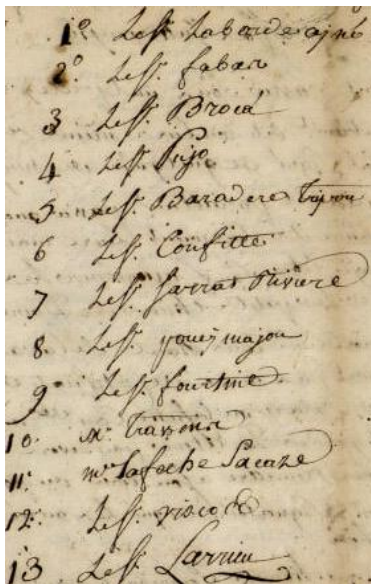 1º Le Sr. Laborde ainé
2º Le Sr. fabar
3 Le Sr. Broca
4 Le Sr. Pujo
5 Le Sr. Baradere
6 Le Sr. Confitte
7 Le Sr. Sarrat Riviere
8. Le Sr. poueymajou
9 Le Sr. fourtine
10. Mr
11. Mr. Lafoche Lacaze
12. Le Sr.
13 Le Sr. Larrieu